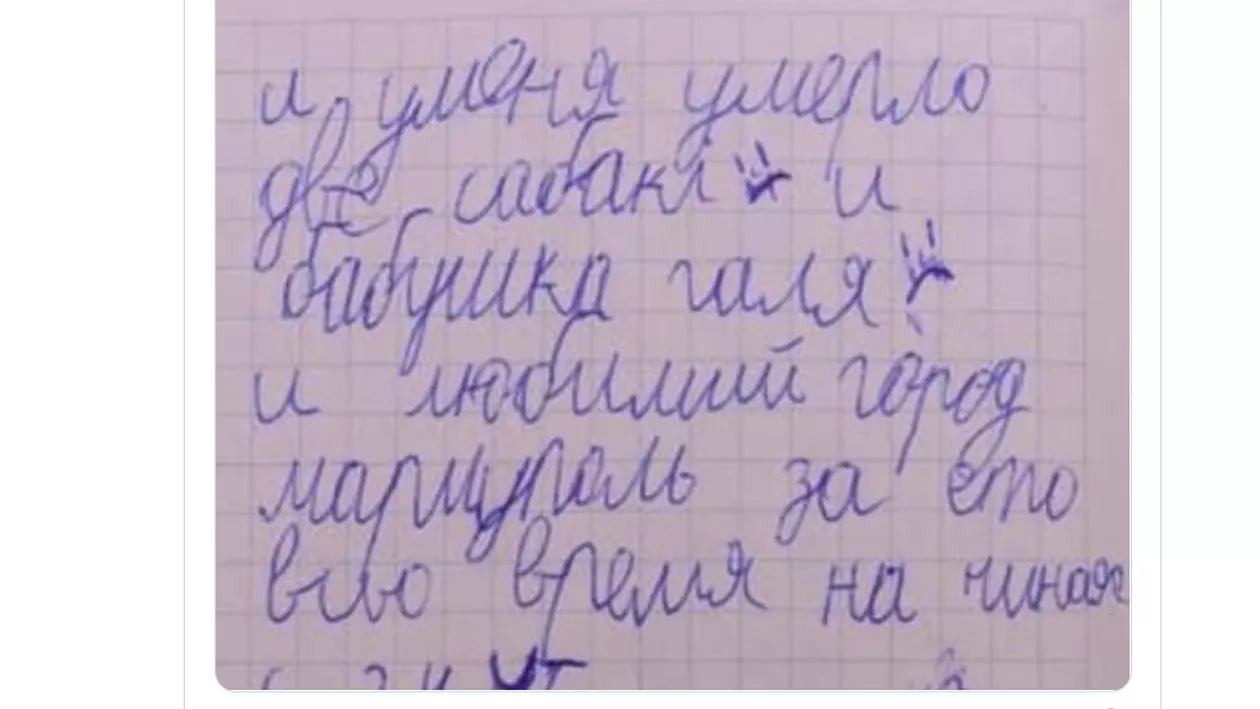 и уменя умерло
две сабакі и
бабушка галя
и любимий город
мариуполь за ето
всю время на чиная
с